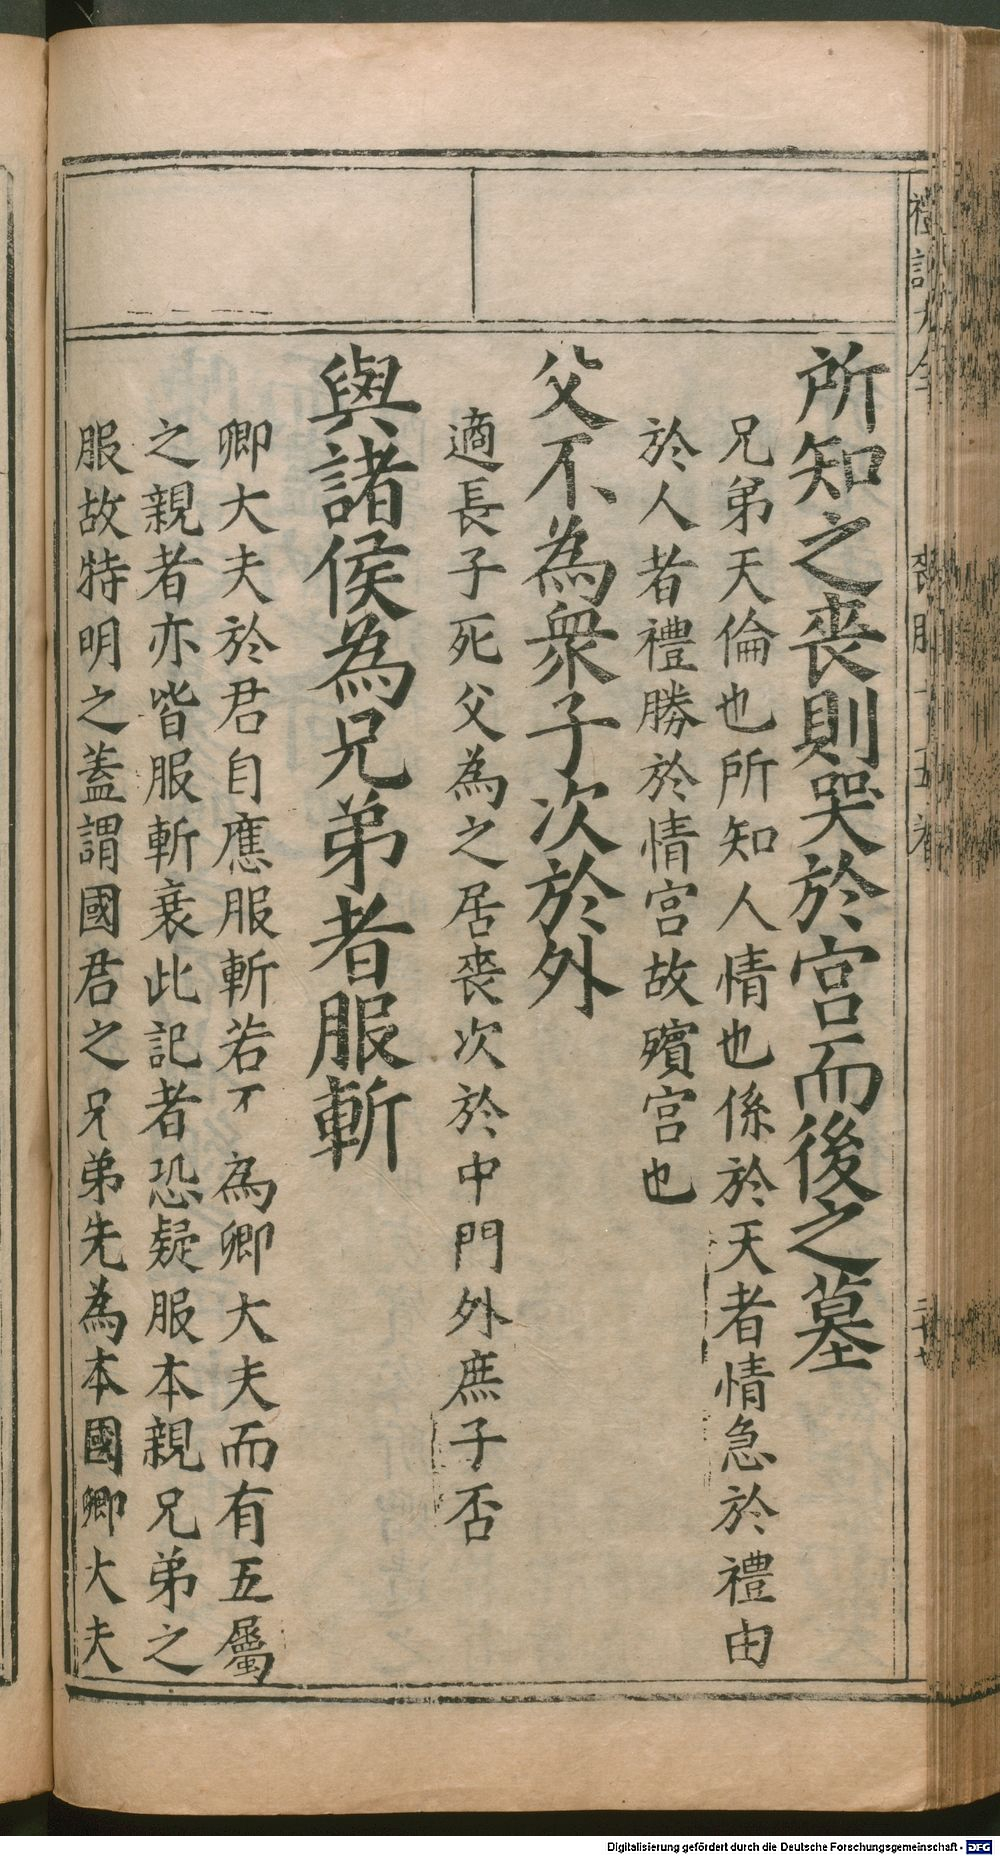 所知之喪則哭於宮而後之墓
兄弟天倫也所知人情也係於天者情急於禮由
於人者禮勝於情宮故殯宮也
父不為衆子次於外
適長子死父為之居喪次於中門外庶子否
與諸侯為兄弟者服斬
卿大夫於君自應服斬若不為卿大夫而有五屬
之親者亦皆服斬衰此記者恐疑服本親兄弟之
服故特明之蓋謂國君之兄弟先為本國卿大夫
Digitalisierung gefördert durch die Deutsche Forschungsgemeinschaft - DFG